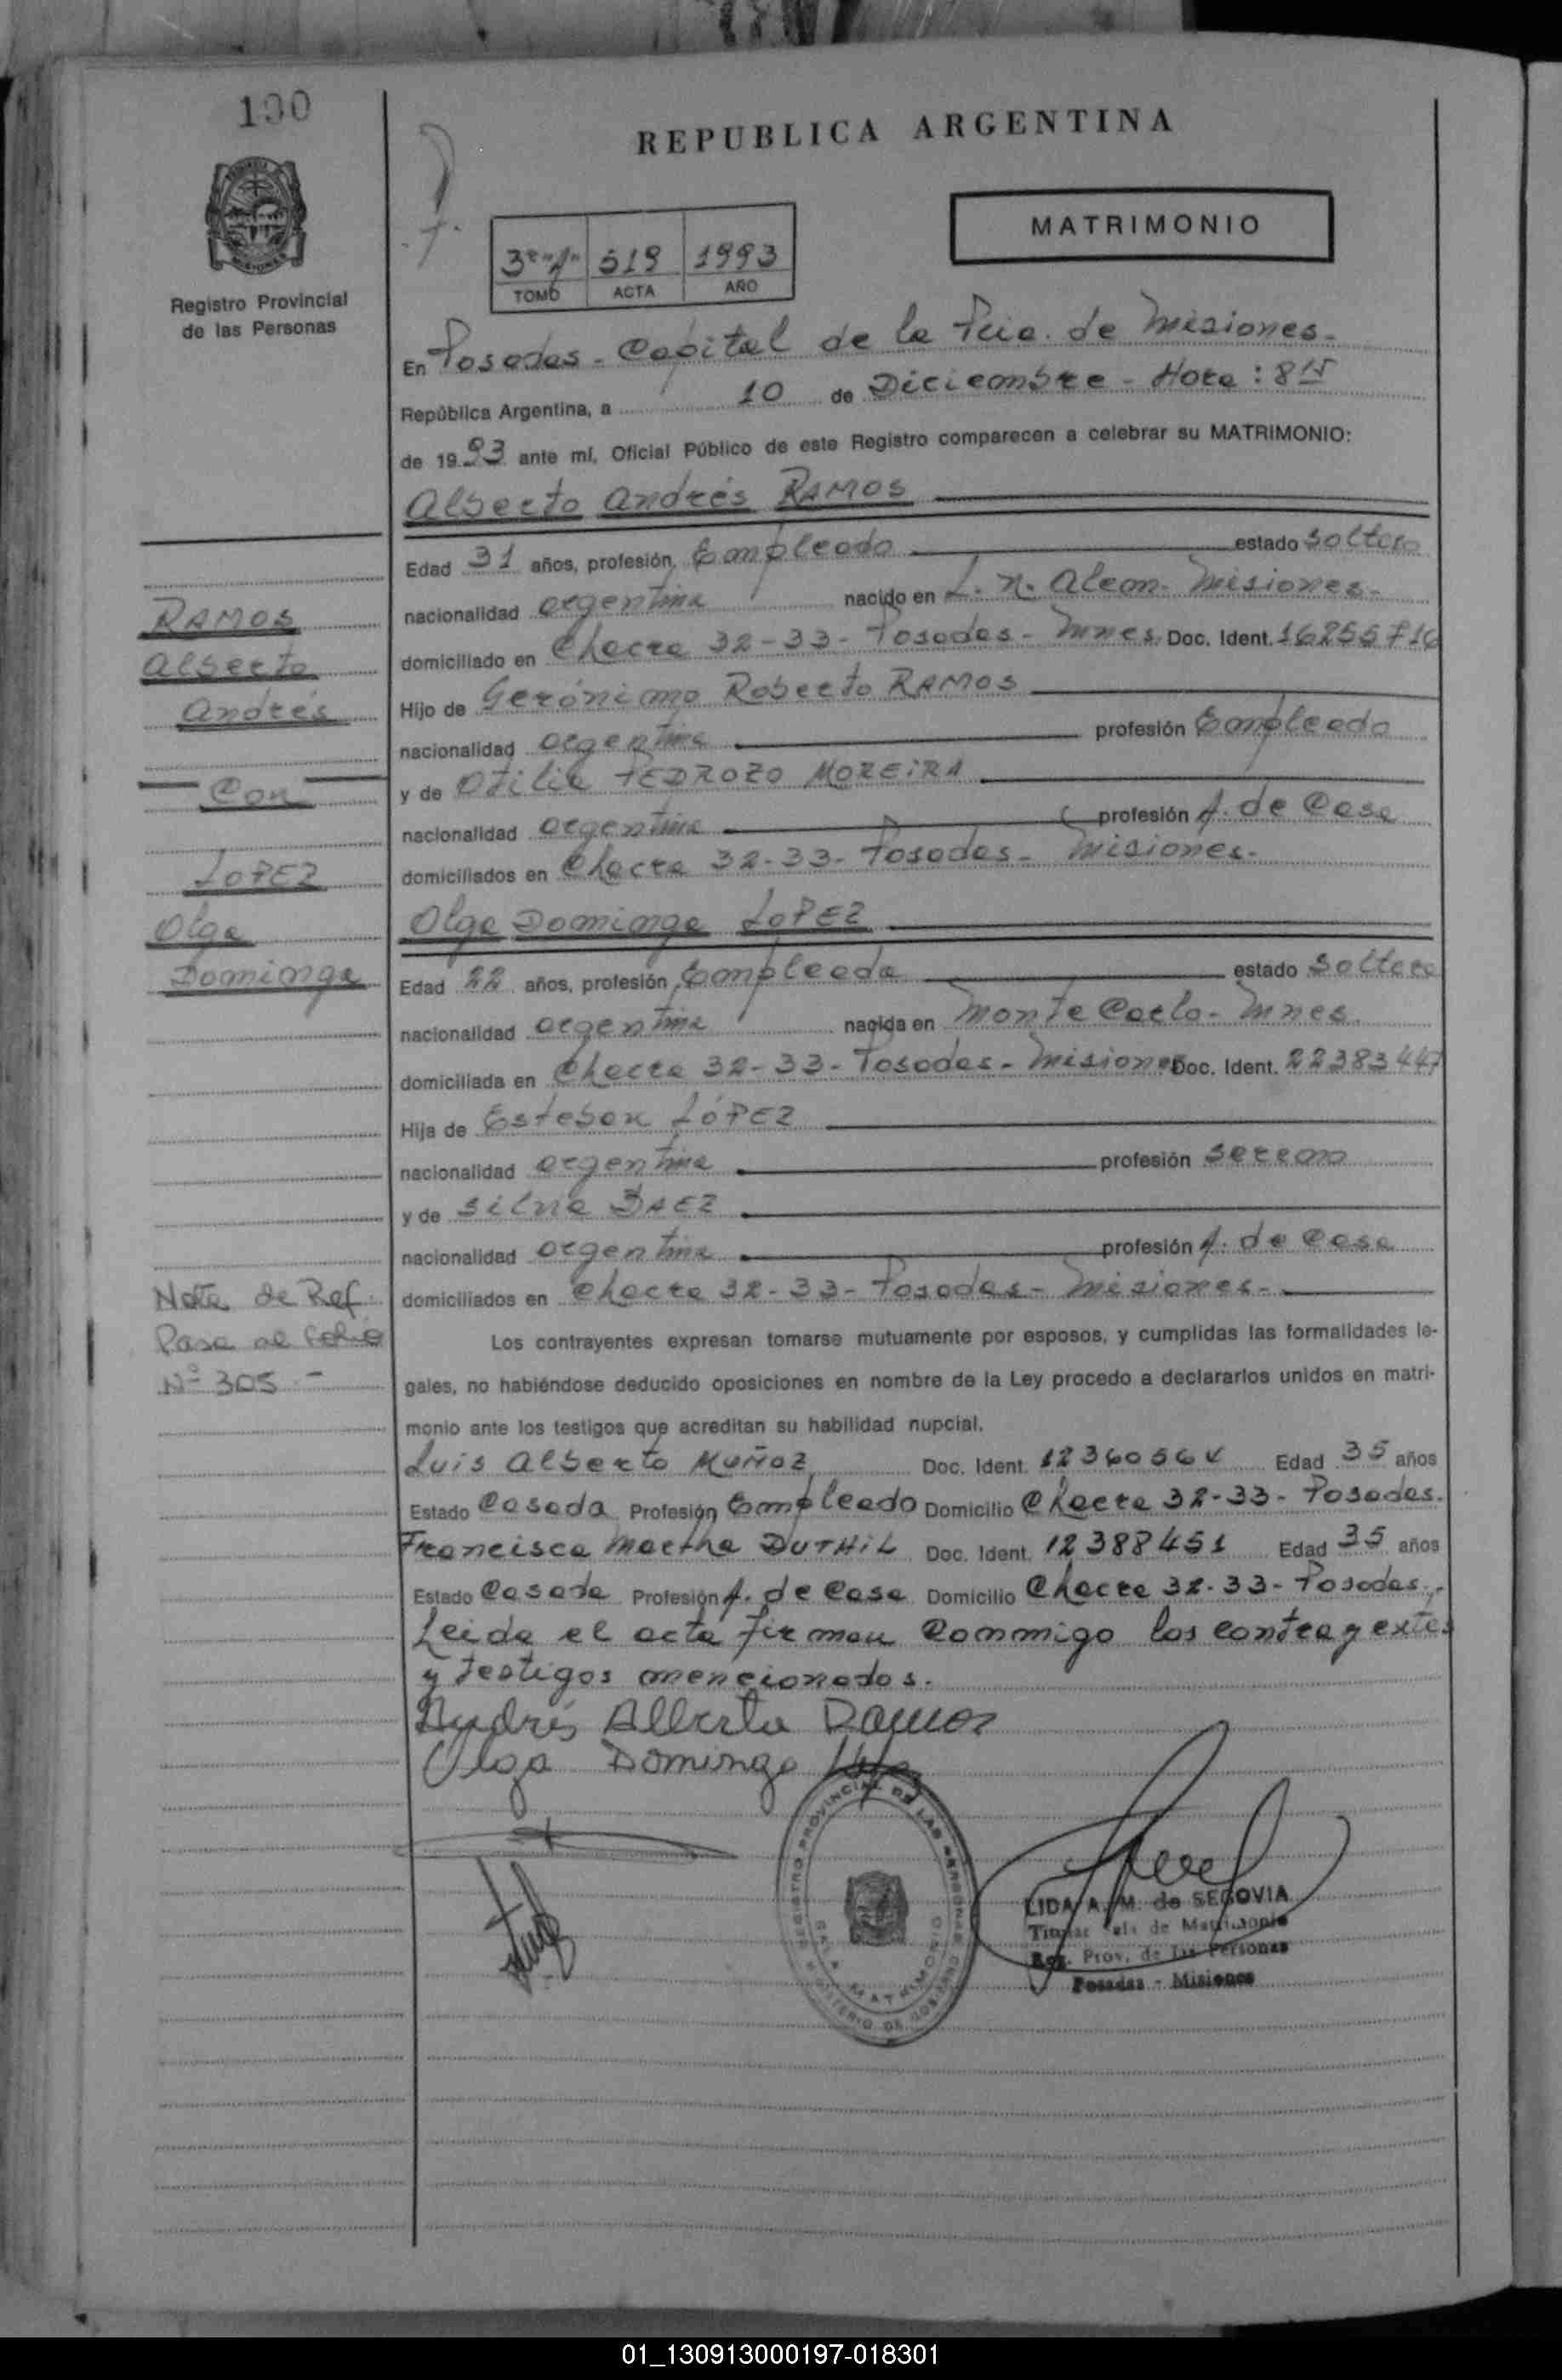 100
REPUBLICA ARGENTINA
MATRIMONIO
3º "A" 519 1993
TOMO ACTA AÑO
Registro Provincial
de las Personas
En Posadas - Capital de la Pcia. de Misiones.
República Argentina, a 10 de Diciembre - Hora: 8 15
de 19 93 ante mí, Oficial Público de este Registro comparecen a celebrar su MATRIMONIO:
Alberto Andrés RAMOS
Edad 31 años, profesión Empleado estado soltero
nacionalidad argentina nacido en L. N. Alem - Misiones.
domiciliado en Chacra 32-33- Posadas - Mnes. Doc. Ident. 16255716
Hijo de Gerónimo Roberto RAMOS
nacionalidad argentina profesión Empleado
y de Otilia PEDROZO MOREIRA
nacionalidad argentina profesión A. de Casa
domiciliados en Chacra 32-33- Posadas - Misiones.
Olga Dominga LOPEZ
Edad 22 años, profesión Empleada estado soltera
nacionalidad argentina nacida en Monte Carlo - Mnes.
domiciliada en Chacra 32-33- Posadas - Misiones Doc. Ident. 22383447
Hija de Esteban LÓPEZ
nacionalidad argentina profesión sereno
y de Silva BAEZ
nacionalidad argentina profesión A. de Casa
domiciliados en Chacra 32-33- Posadas - Misiones.-
Los contrayentes expresan tomarse mutuamente por esposos, y cumplidas las formalidades le-
gales, no habiéndose deducido oposiciones en nombre de la Ley procedo a declararlos unidos en matri-
monio ante los testigos que acreditan su habilidad nupcial.
Luis Alberto MUÑOZ Doc. Ident. 12360564 Edad 35 años
Estado Casado Profesión Empleado Domicilio Chacra 32-33- Posadas.
Francisca Martha DUTHIL Doc. Ident. 12388451 Edad 35 años
Estado Casada Profesión A. de Casa Domicilio Chacra 32-33- Posadas.
Leida el acta firman conmigo los contrayentes
y testigos mencionados.
Andrés Alberto Ramos
Olga Dominga
RAMOS
Alberto
Andrés
Con
LOPEZ
Olga
Dominga
Nota de Ref.
Pasa al folio
Nº 305 -
REGISTRO PROVINCIAL DE LAS PERSONAS
SALA MATRIMONIO
MINISTERIO DE GOBIERNO
LIDA A. M. de SEGOVIA
Titular Sala de Matrimonio
Reg. Prov. de las Personas
Posadas - Misiones
01_130913000197-018301